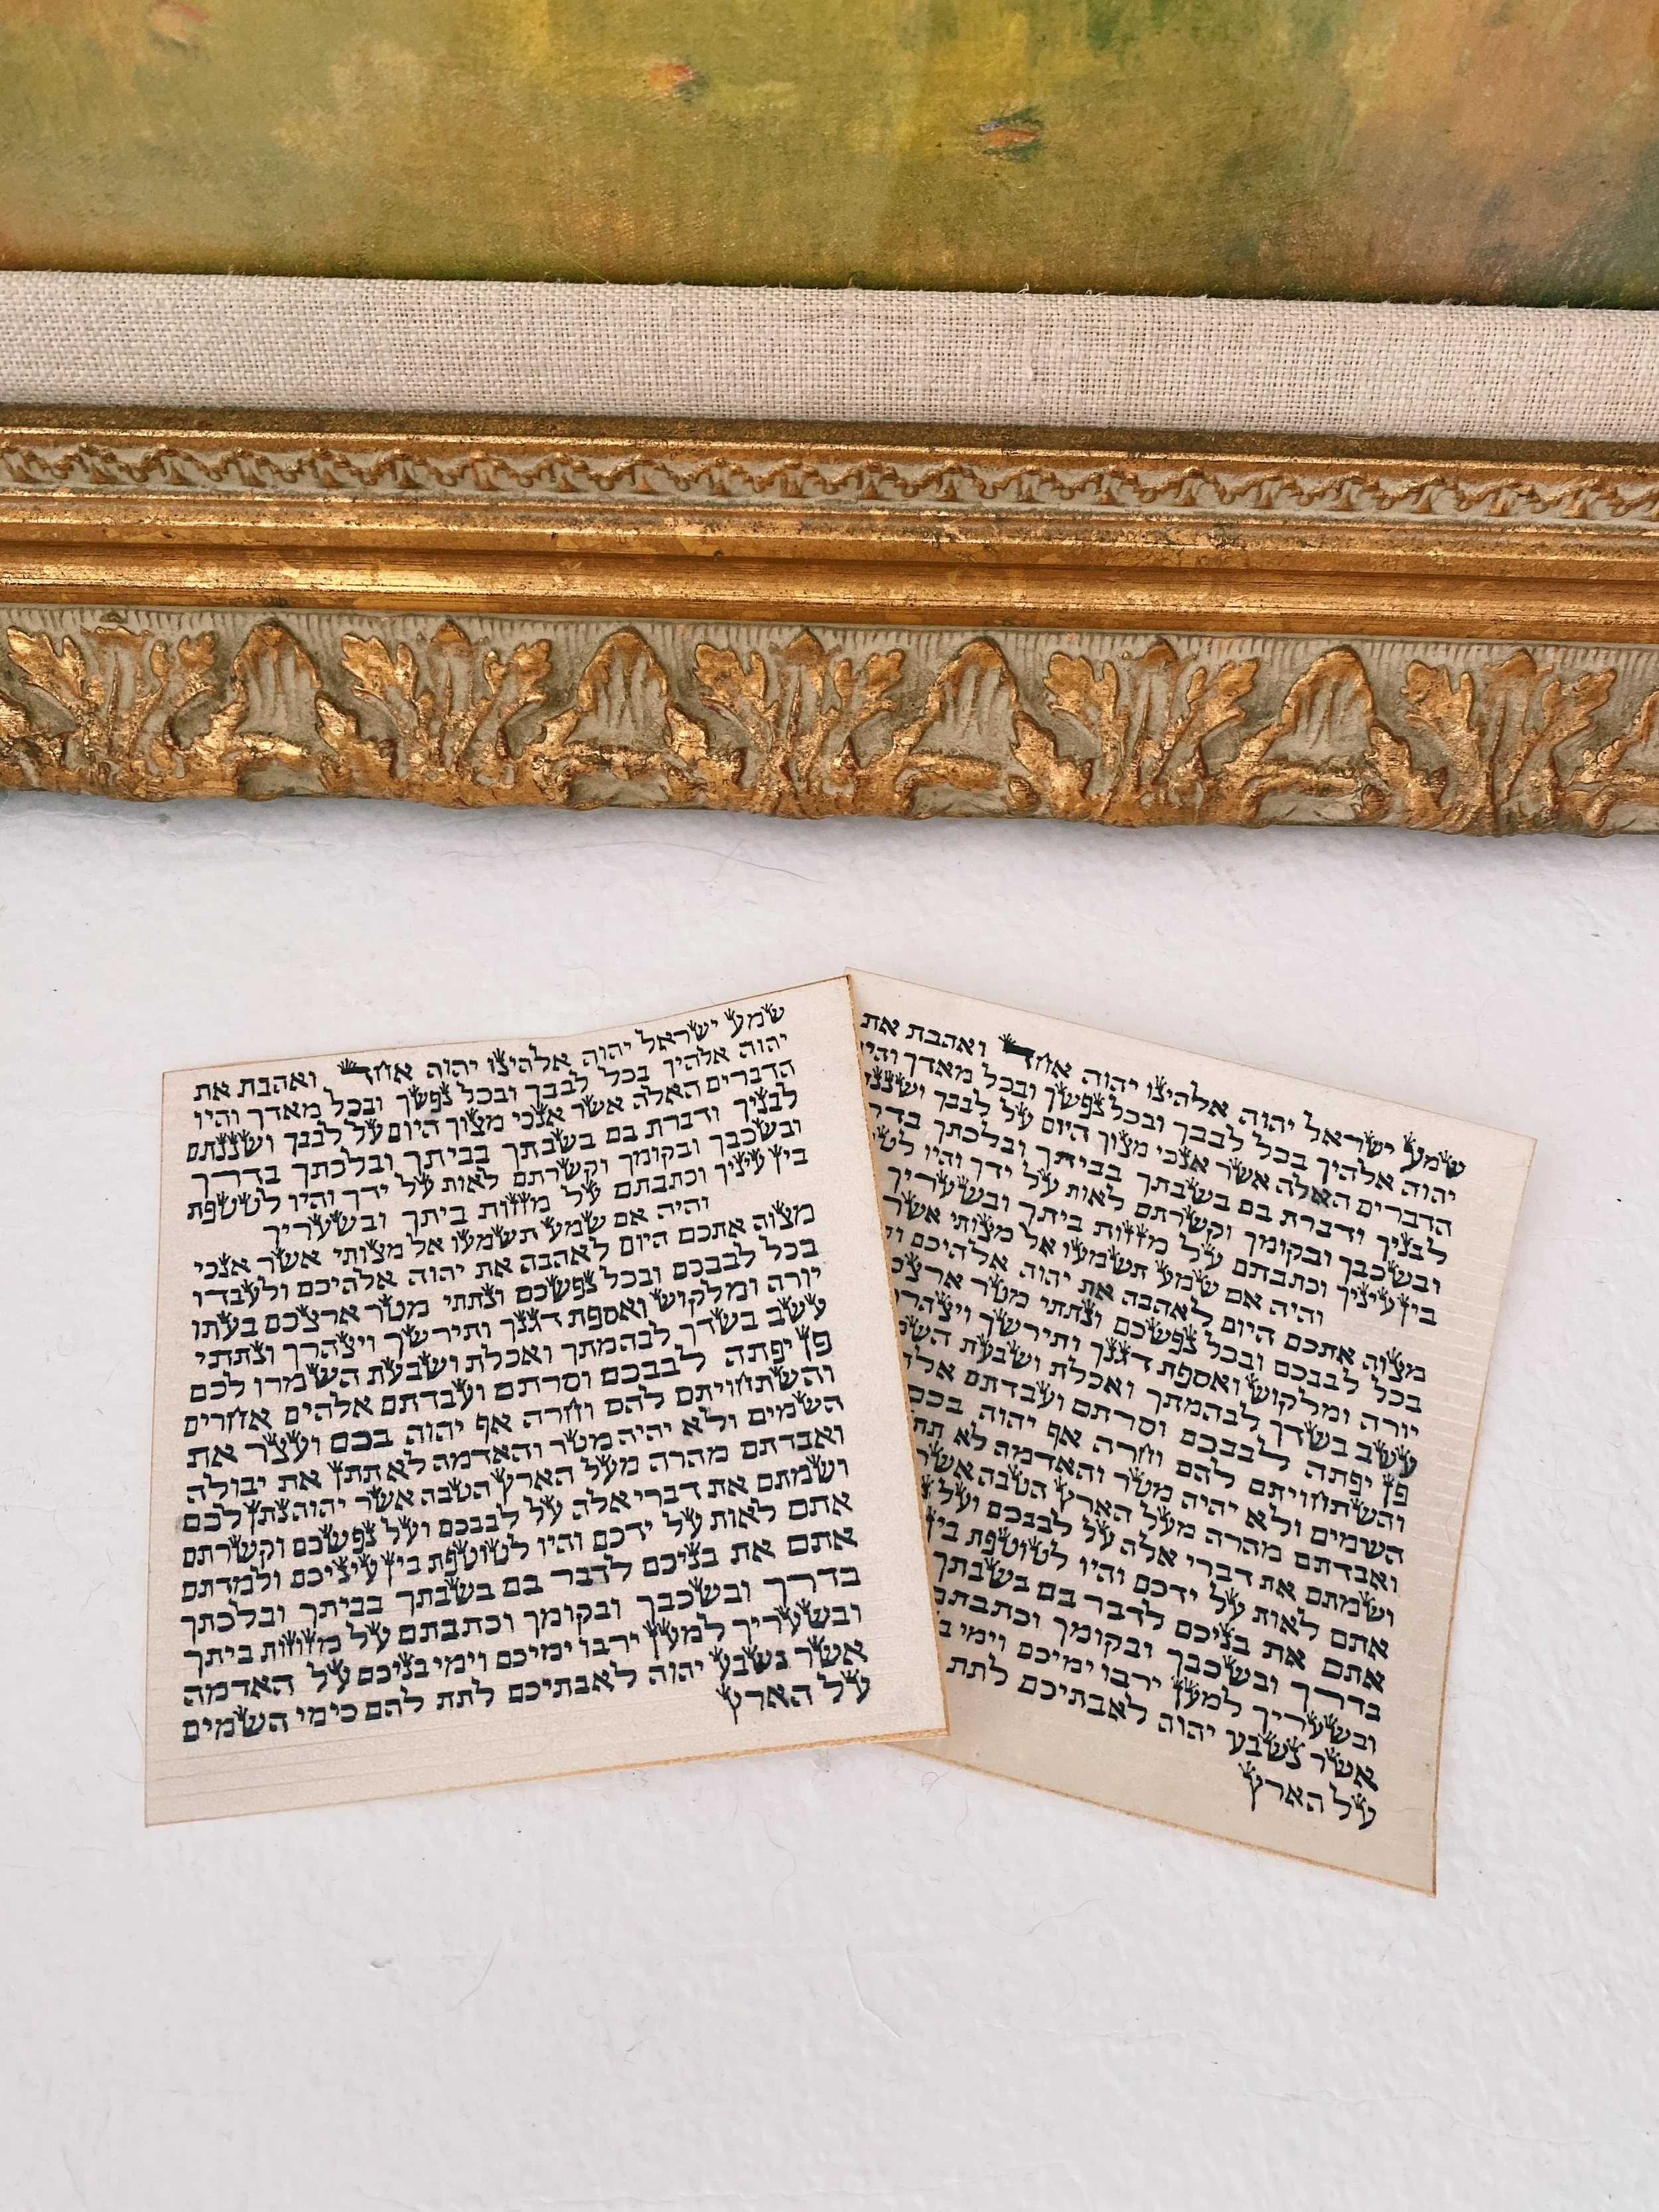 שמע ישראל יהוה אלהינו יהוה אחד ואהבת את
יהוה אלהיך בכל לבבך ובכל נפשך ובכל מאדך והיו
הדברים האלה אשר אנכי מצוך היום על לבבך ושננתם
לבניך ודברת בם בשבתך בביתך ובלכתך בדרך
ובשכבך ובקומך וקשרתם לאות על ידך והיו לטטפת
בין עיניך וכתבתם על מזזות ביתך ובשעריך
והיה אם שמע תשמעו אל מצותי אשר אנכי
מצוה אתכם היום לאהבה את יהוה אלהיכם ולעבדו
בכל לבבכם ובכל נפשכם ונתתי מטר ארצכם בעתו
יורה ומלקוש ואספת דגנך ותירשך ויצהרך ונתתי
עשב בשדך לבהמתך ואכלת ושבעת השמרו לכם
פן יפתה לבבכם וסרתם ועבדתם אלהים אחרים
והשתחויתם להם וחרה אף יהוה בכם ועצר את
השמים ולא יהיה מטר והאדמה לא תתן את יבולה
ואבדתם מהרה מעל הארץ הטבה אשר יהוה נתן לכם
ושמתם את דברי אלה על לבבכם ועל נפשכם וקשרתם
אתם לאות על ידכם והיו לטוטפת בין עיניכם ולמדתם
אתם את בניכם לדבר בם בשבתך בביתך ובלכתך
בדרך ובשכבך ובקומך וכתבתם על מזוזות ביתך
ובשעריך למען ירבו ימיכם וימי בניכם על האדמה
אשר נשבע יהוה לאבתיכם לתת להם כימי השמים
על הארץ
שמע ישראל יהוה אלהינו יהוה אחד ואהבת את
יהוה אלהיך בכל לבבך ובכל נפשך ובכל מאדך והיו
הדברים האלה אשר אנכי מצוך היום על לבבך
לבניך ודברת בם בשבתך בביתך ובלכתך
ובשכבך ובקומך וקשרתם לאות על ידך והיו
בין עיניך וכתבתם על מזזות ביתך ובשעריך
והיה אם שמע תשמעו אל מצותי אשר
מצוה אתכם היום לאהבה את יהוה אלהיכם
בכל לבבכם ובכל נפשכם ונתתי מטר
יורה ומלקוש ואספת דגנך ותירשך
עשב בשדך לבהמתך ואכלת ושבעת
פן יפתה לבבכם וסרתם ועבדתם
והשתחויתם להם וחרה אף יהוה בכם
השמים ולא יהיה מטר והאדמה לא
ואבדתם מהרה מעל הארץ הטבה אשר
ושמתם את דברי אלה על לבבכם ועל
אתם לאות על ידכם והיו לטוטפת בין
אתם את בניכם לדבר בם בשבתך
בדרך ובשכבך ובקומך וכתבתם
ובשעריך למען ירבו ימיכם וימי
אשר נשבע יהוה לאבתיכם לתת
על הארץ